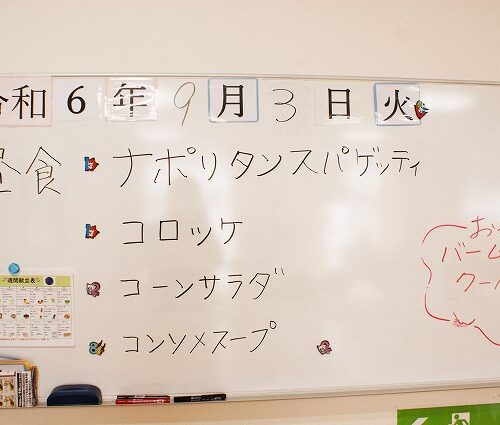 令和6年9月3日火
昼食
ナポリタンスパゲッティ
コロッケ
コーンサラダ
コンソメスープ
お
バーム
クー
週間献立表